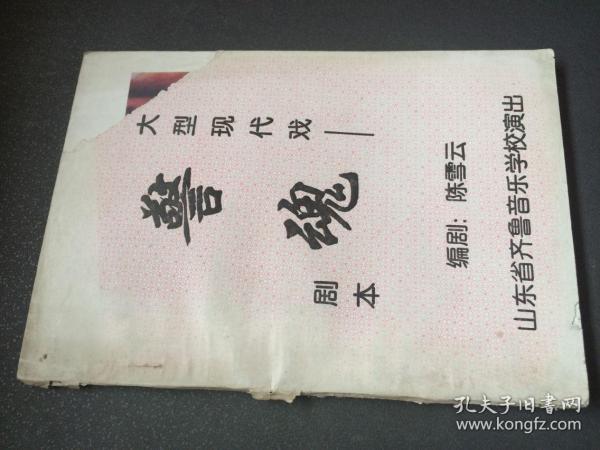 大型现代戏——
警魂
剧本
编剧：陈雪云
山东省齐鲁音乐学校演出
孔夫子旧书网
www.kongfz.com